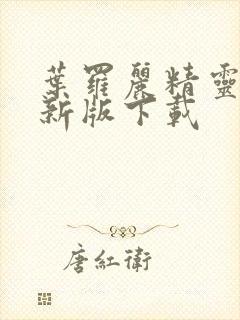 葉羅麗精靈
新版下載
唐紅衛